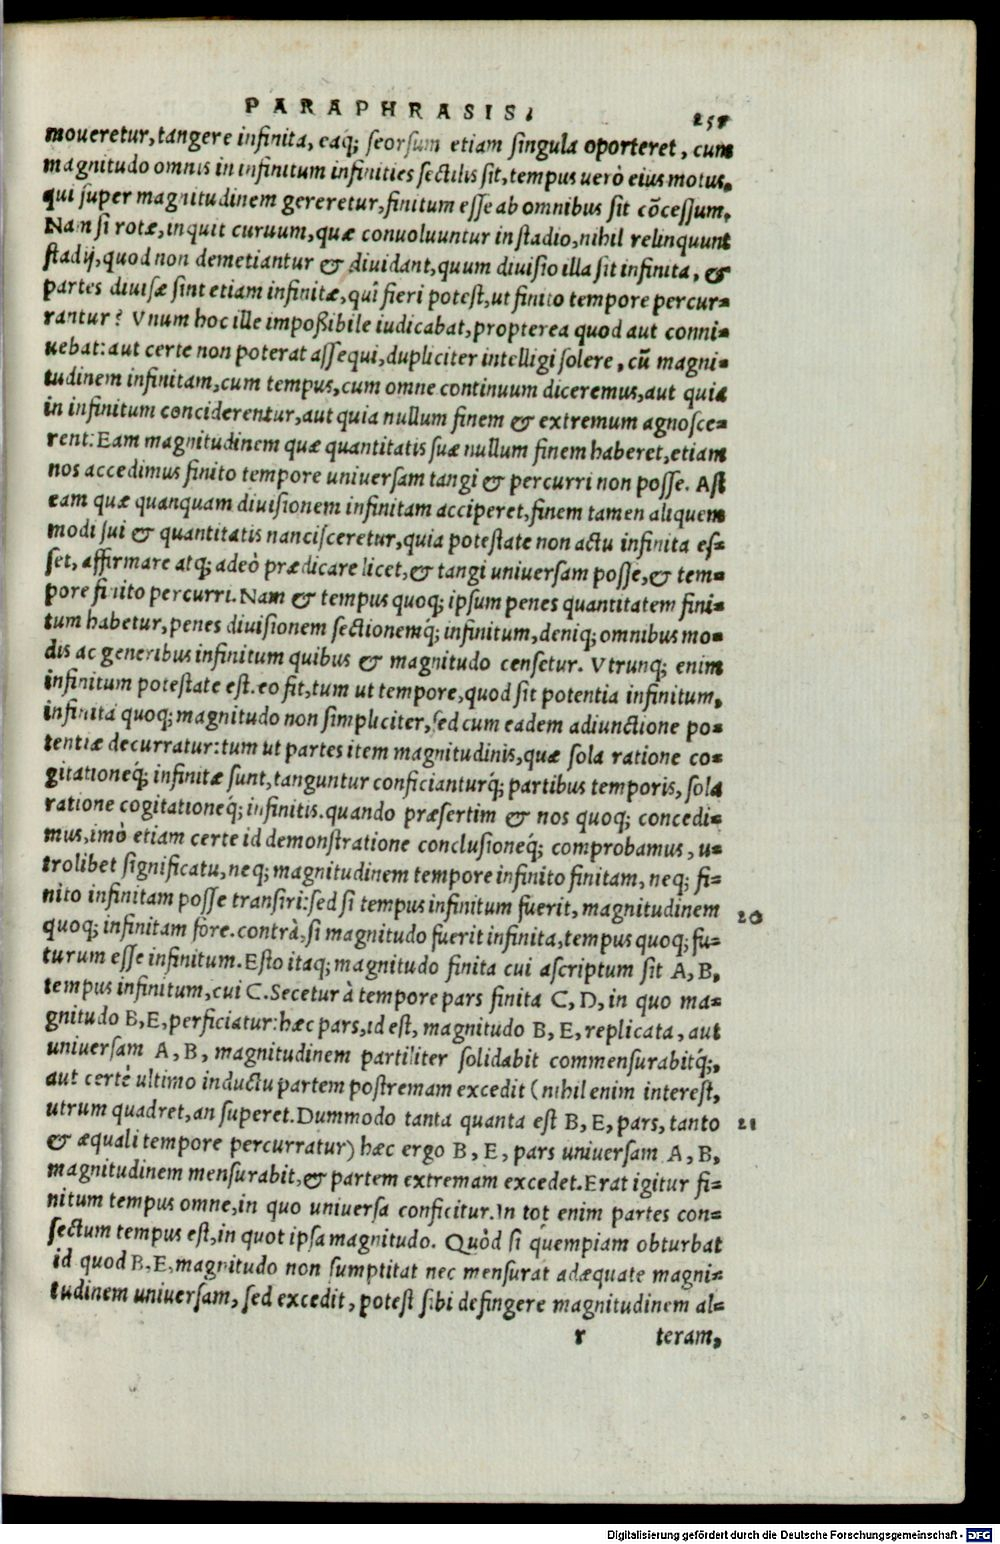 PARAPHRASIS.
moueretur, tangere infinita, eaq; seorsum etiam singula oporteret, cum
magnitudo omnis in infinitum infinities sectilis sit, tempus uerò eius motus,
qui super magnitudinem gereretur, finitum esse ab omnibus sit cōcessum.
Nam si rotæ, inquit curuum, quæ conuoluuntur in stadio, nihil relinquunt
stadij, quod non demetiantur & diuidant, quum diuisio illa sit infinita, &
partes diuisæ sint etiam infinitæ, quî fieri potest, ut finito tempore percur=
rantur? Vnum hoc ille impoßibile iudicabat, propterea quod aut conni=
uebat: aut certe non poterat assequi, dupliciter intelligi solere, cũ magni=
tudinem infinitam, cum tempus, cum omne continuum diceremus, aut quia
in infinitum conciderentur, aut quia nullum finem & extremum agnosce=
rent: Eam magnitudinem quæ quantitatis suæ nullum finem haberet, etiam
nos accedimus finito tempore uniuersam tangi & percurri non posse. Ast
eam quæ quanquam diuisionem infinitam acciperet, finem tamen aliquem
modi sui & quantitatis nancisceretur, quia potestate non actu infinita es=
set, affirmare atq; adeò prædicare licet, & tangi uniuersam posse, & tem=
pore finito percurri. Nam & tempus quoq; ipsum penes quantitatem fini=
tum habetur, penes diuisionem sectionemq́; infinitum, deniq; omnibus mo=
dis ac generibus infinitum quibus & magnitudo censetur. Vtrunq; enim
infinitum potestate est. eo fit, tum ut tempore, quod sit potentia infinitum,
infinita quoq; magnitudo non simpliciter, sed cum eadem adiunctione po=
tentiæ decurratur: tum ut partes item magnitudinis, quæ sola ratione co=
gitationeq́; infinitæ sunt, tanguntur conficianturq́; partibus temporis, sola
ratione cogitationeq́; infinitis. quando præsertim & nos quoq; concedi=
mus, imò etiam certe id demonstratione conclusioneq́; comprobamus, u=
trolibet significatu, neq; magnitudinem tempore infinito finitam, neq; fi=
nito infinitam posse transiri: sed si tempus infinitum fuerit, magnitudinem 20
quoq; infinitam fore. contrà, si magnitudo fuerit infinita, tempus quoq; fu=
turum esse infinitum. Esto itaq; magnitudo finita cui ascriptum sit A, B,
tempus infinitum, cui C. Secetur à tempore pars finita C, D, in quo ma=
gnitudo B, E, perficiatur: hæc pars, id est, magnitudo B, E, replicata, aut
uniuersam A, B, magnitudinem partiliter solidabit commensurabitq́;,
aut certè ultimo inductu partem postremam excedit (nihil enim interest,
utrum quadret, an superet. Dummodo tanta quanta est B, E, pars, tanto 21
& æquali tempore percurratur) hæc ergo B, E, pars uniuersam A, B,
magnitudinem mensurabit, & partem extremam excedet. Erat igitur fi=
nitum tempus omne, in quo uniuersa conficitur. In tot enim partes con=
sectum tempus est, in quot ipsa magnitudo. Quòd si quempiam obturbat
id quod B, E, magnitudo non sumptitat nec mensurat adæquate magni=
tudinem uniuersam, sed excedit, potest sibi defingere magnitudinem al=
r teram,
Digitalisierung gefördert durch die Deutsche Forschungsgemeinschaft - DFG